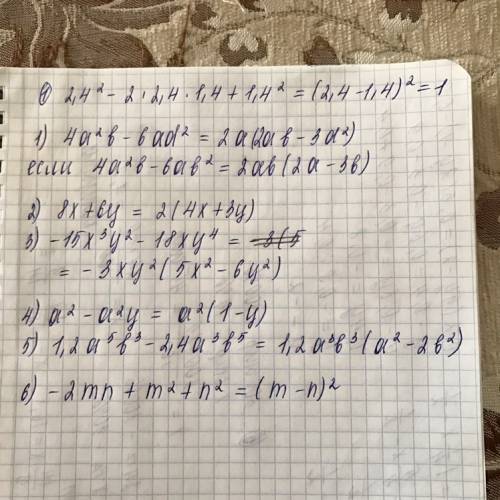 4) 2,4² - 2 · 2,4 · 1,4 + 1,4² = (2,4 - 1,4)² = 1
1) 4a²b - 6ad² = 2a(2ab - 3d²)
если 4a²b - 6ab² = 2ab(2a - 3b)
2) 8x + 6y = 2(4x + 3y)
3) -15x³y² - 18xy⁴ =
= -3xy²(5x² - 6y²)
4) a² - a²y = a²(1 - y)
5) 1,2a⁵b³ - 2,4a³b⁵ = 1,2a³b³(a² - 2b²)
6) -2mn + m² + n² = (m - n)²